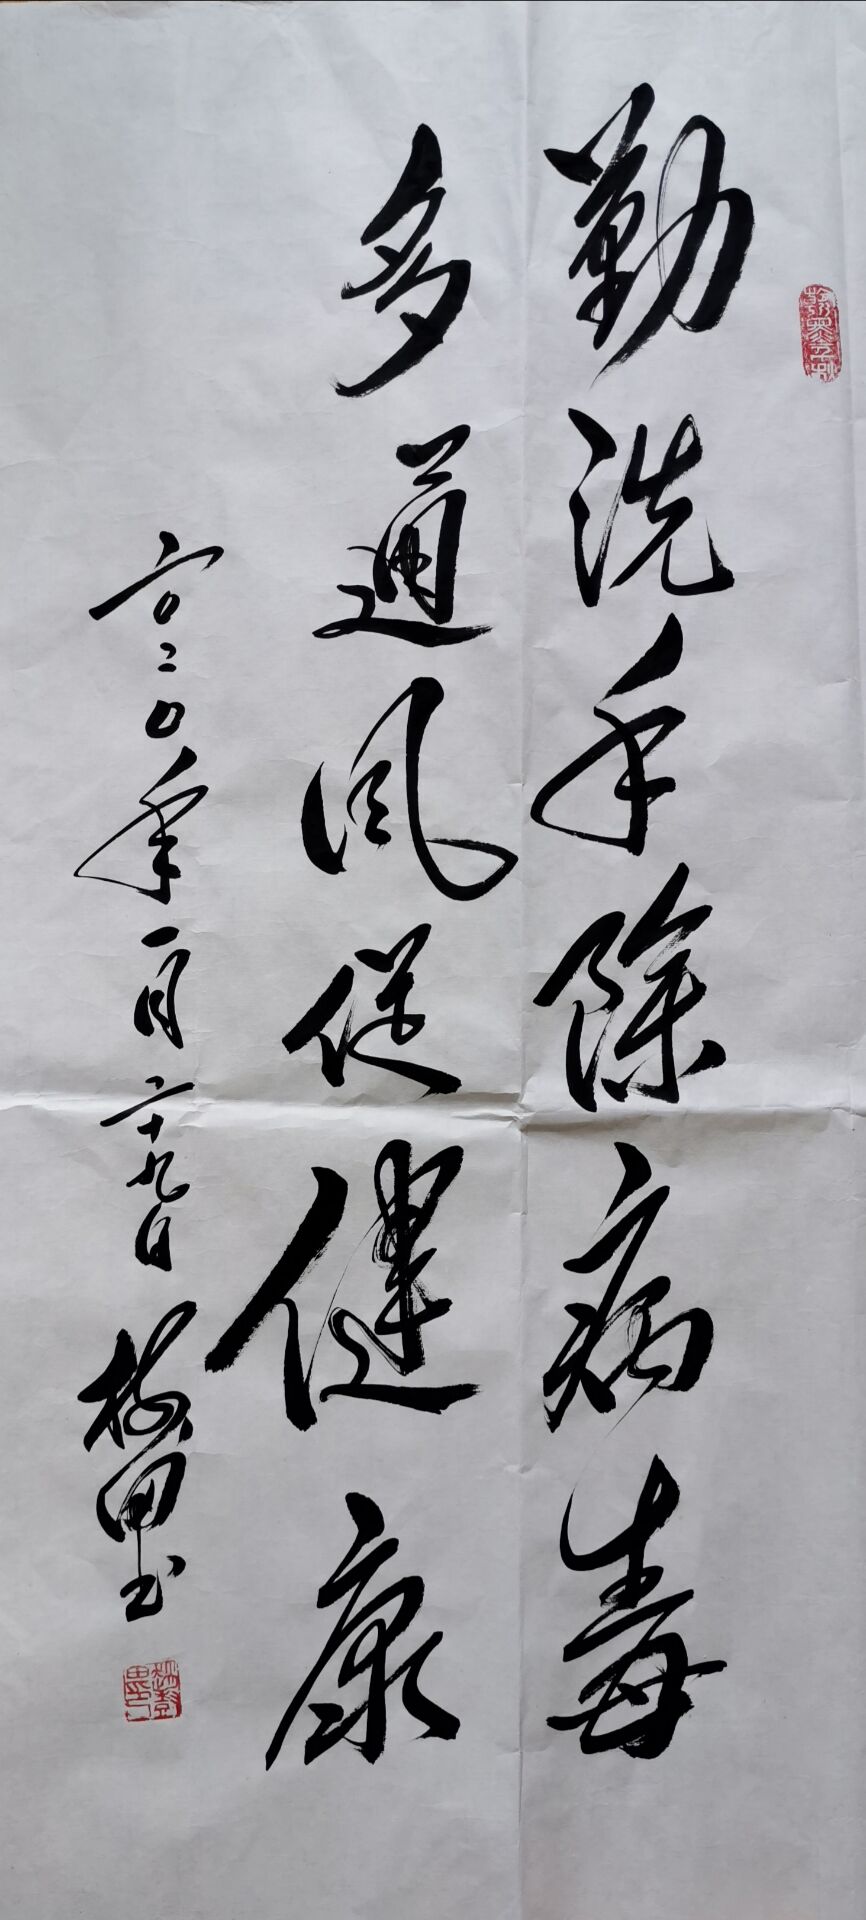 勤洗手除病毒
多通风促健康
二〇二〇年一月二十九日 梅田墨